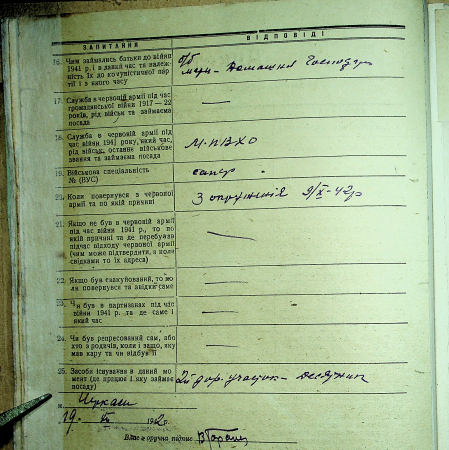 ЗАПИТАННЯ ВІДПОВІДІ
16. Чим займались батьки до війни
1941 р. і в даний час та належ-
ність їх до комуністичної пар-
тії і з якого часу
б/б
мати - Домашня Господар
17. Служба в червоній армії під час
громадянської війни 1917—22
років, рід військ та займаєма
посада
—
18. Служба в червоній армії під
час війни 1941 року, який час,
рід військ, останнє військове
звання та займаєма посада
М-ПВХО
19. Військова спеціальність
№ (ВУС)
сапер
20. Коли повернувся з червоної
армії та по якій причині
З оточення 9/X-42р
21. Якщо не був в червоній армії
під час війни 1941 р., то по
якій причині та де перебував
підчас відходу червоної армії
(чим може підтвердити, а коли
свідками то їх адреса)
—
22. Якщо був евакуйований, то ко-
ли повернувся та звідки саме
—
23. Чи був в партизанах під час
війни 1941 р. та де саме і
який час
—
24. Чи був репресований сам, або
хто з родичів, коли і защо, яку
мав кару та чи відбув її
—
25. Засоби існування в даний мо-
мент (де працює і яку займає
посаду)
дор. участок - десятник
19 1942 р.
Власноручна підпис